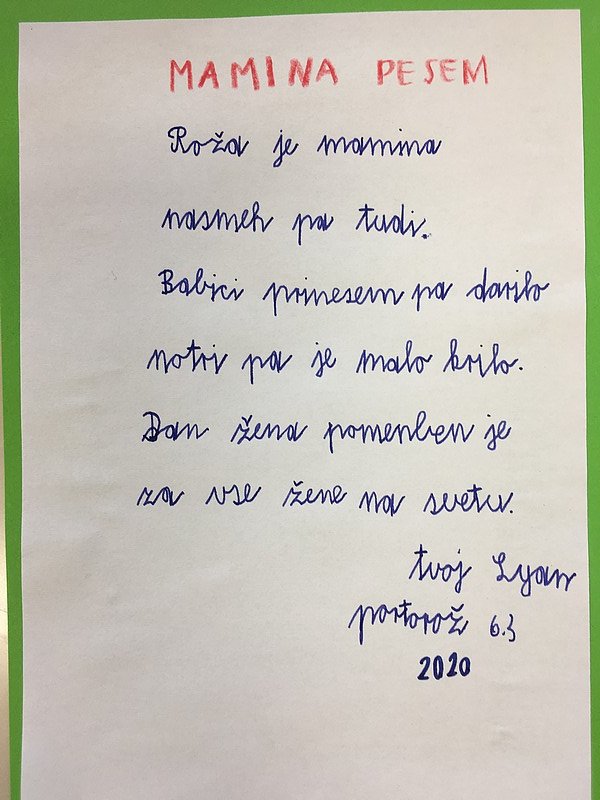 MAMINA PESEM
Roža je mamina
nasmeh pa tudi.
Babici prinesem pa darilo
notri pa je malo krilo.
Dan žena pomenben je
za vse žene na svetu.
tvoj Lyan
portorož 6.3
2020